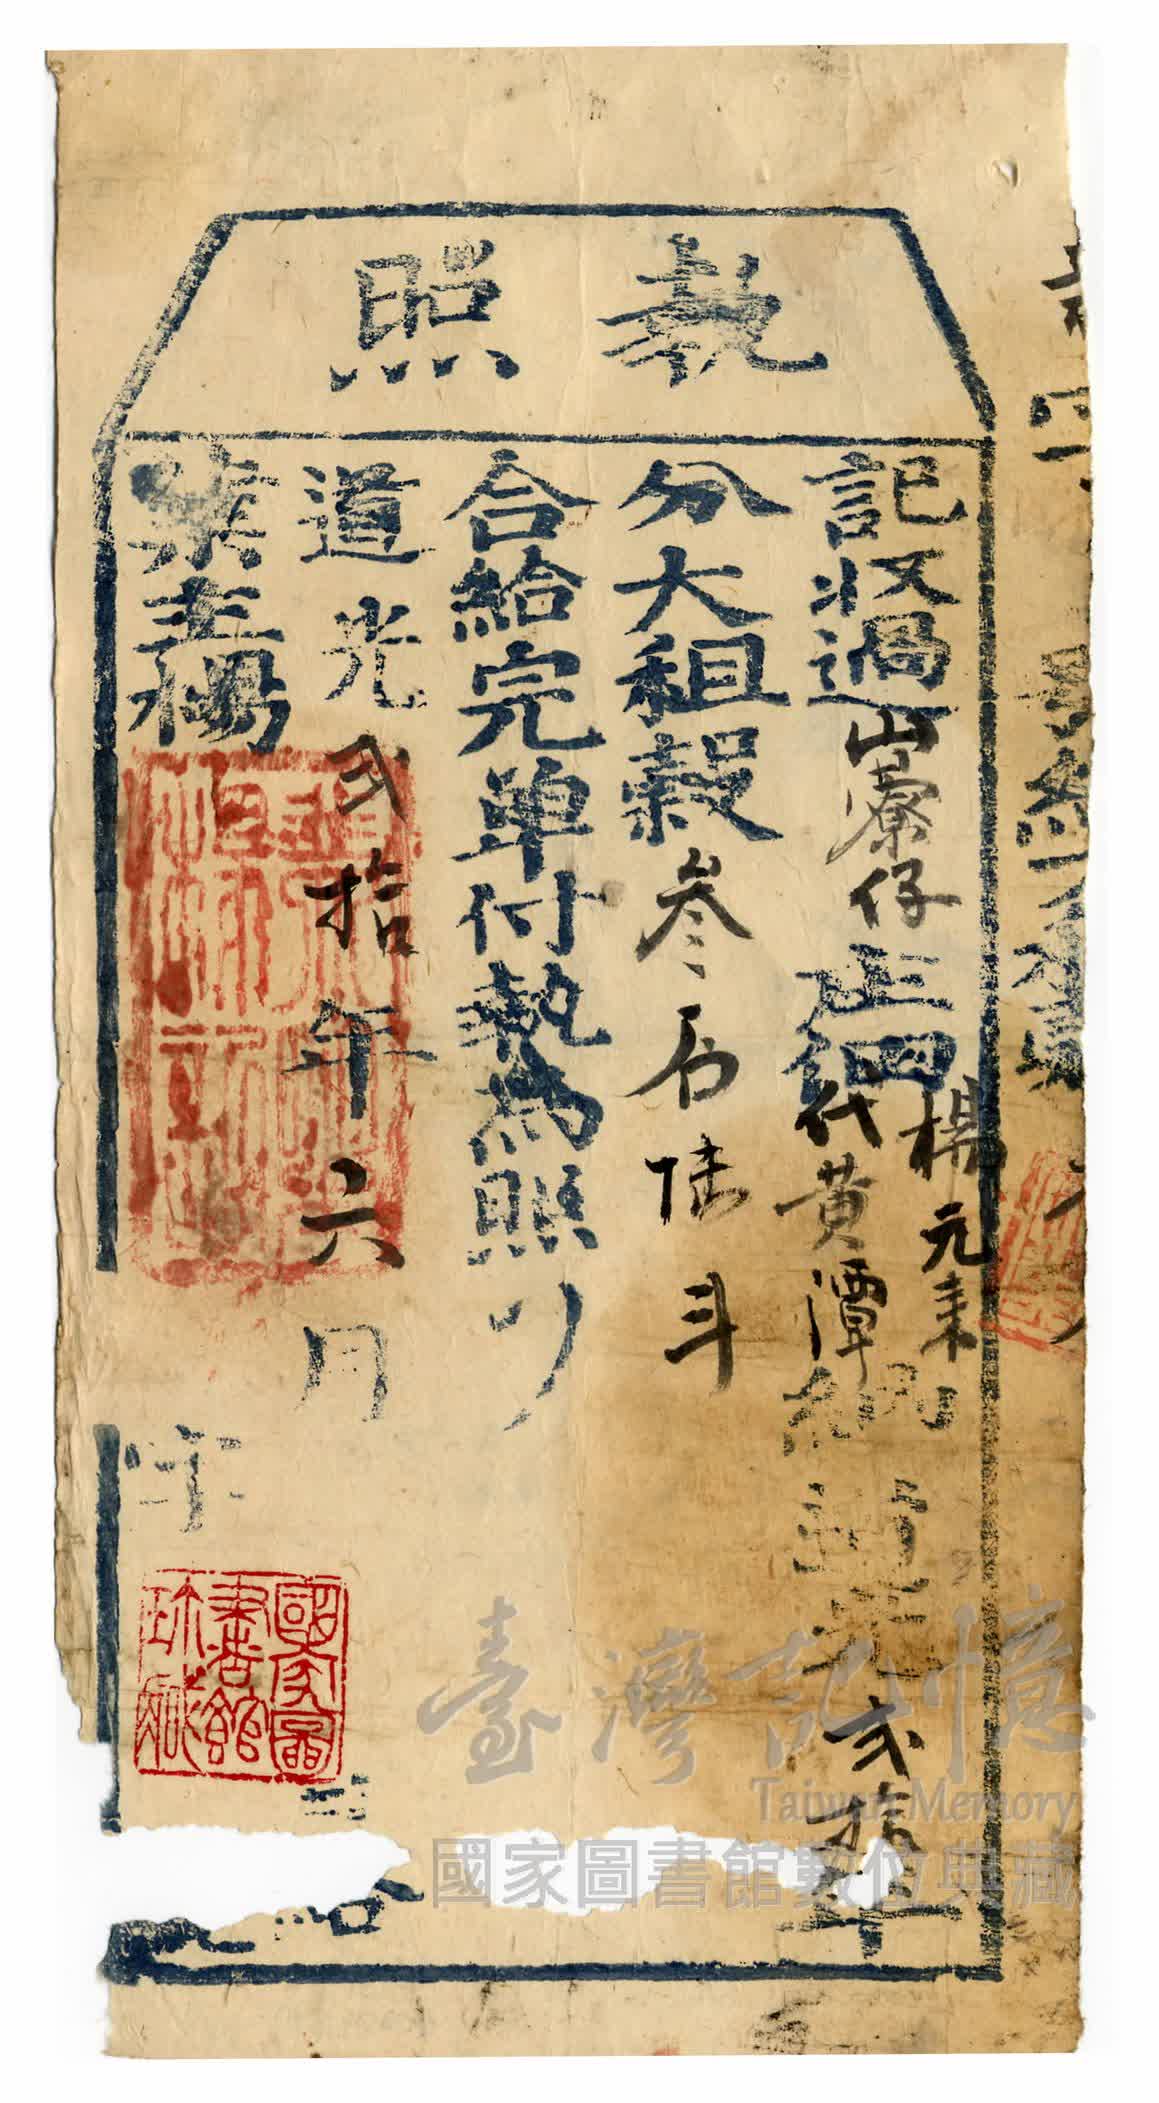 執照
記收過山寮仔庄佃楊元秉
代黃潭納道光弍拾年
分大租穀叁石陸斗
合給完單付執為照
道光弍拾年六月
業主楊
字
國家圖書館珍藏
臺灣記憶
Taiwan Memory
國家圖書館數位典藏